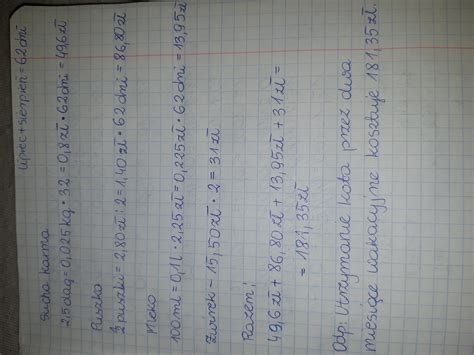 lipiec + sierpień = 62 dni
Sucha karma
2,5 dag = 0,025 kg · 32 = 0,8 zł · 62 dni = 49,6 zł
Puszka
½ puszki = 2,80 zł : 2 = 1,40 zł · 62 dni = 86,80 zł
Mleko
100 ml = 0,1 l · 2,25 zł = 0,225 zł · 62 dni = 13,95 zł
Żwirek – 15,50 zł · 2 = 31 zł
Razem:
49,6 zł + 86,80 zł + 13,95 zł + 31 zł =
= 181,35 zł
Odp: Utrzymanie kota przez dwa
miesiące wakacyjne kosztuje 181,35 zł.